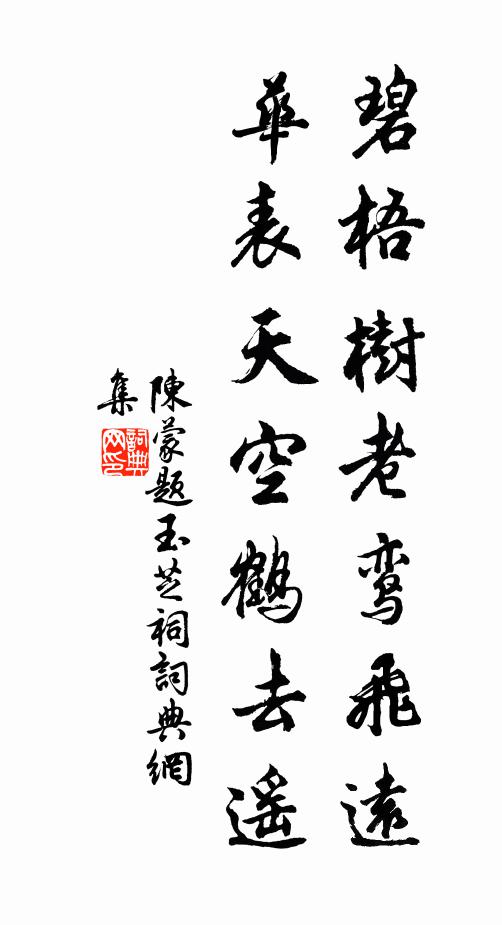 碧梧樹老鸾飛遠
華表天空鶴去遥
陳蒙题玉芝祠詞典網
集
詞典
网印